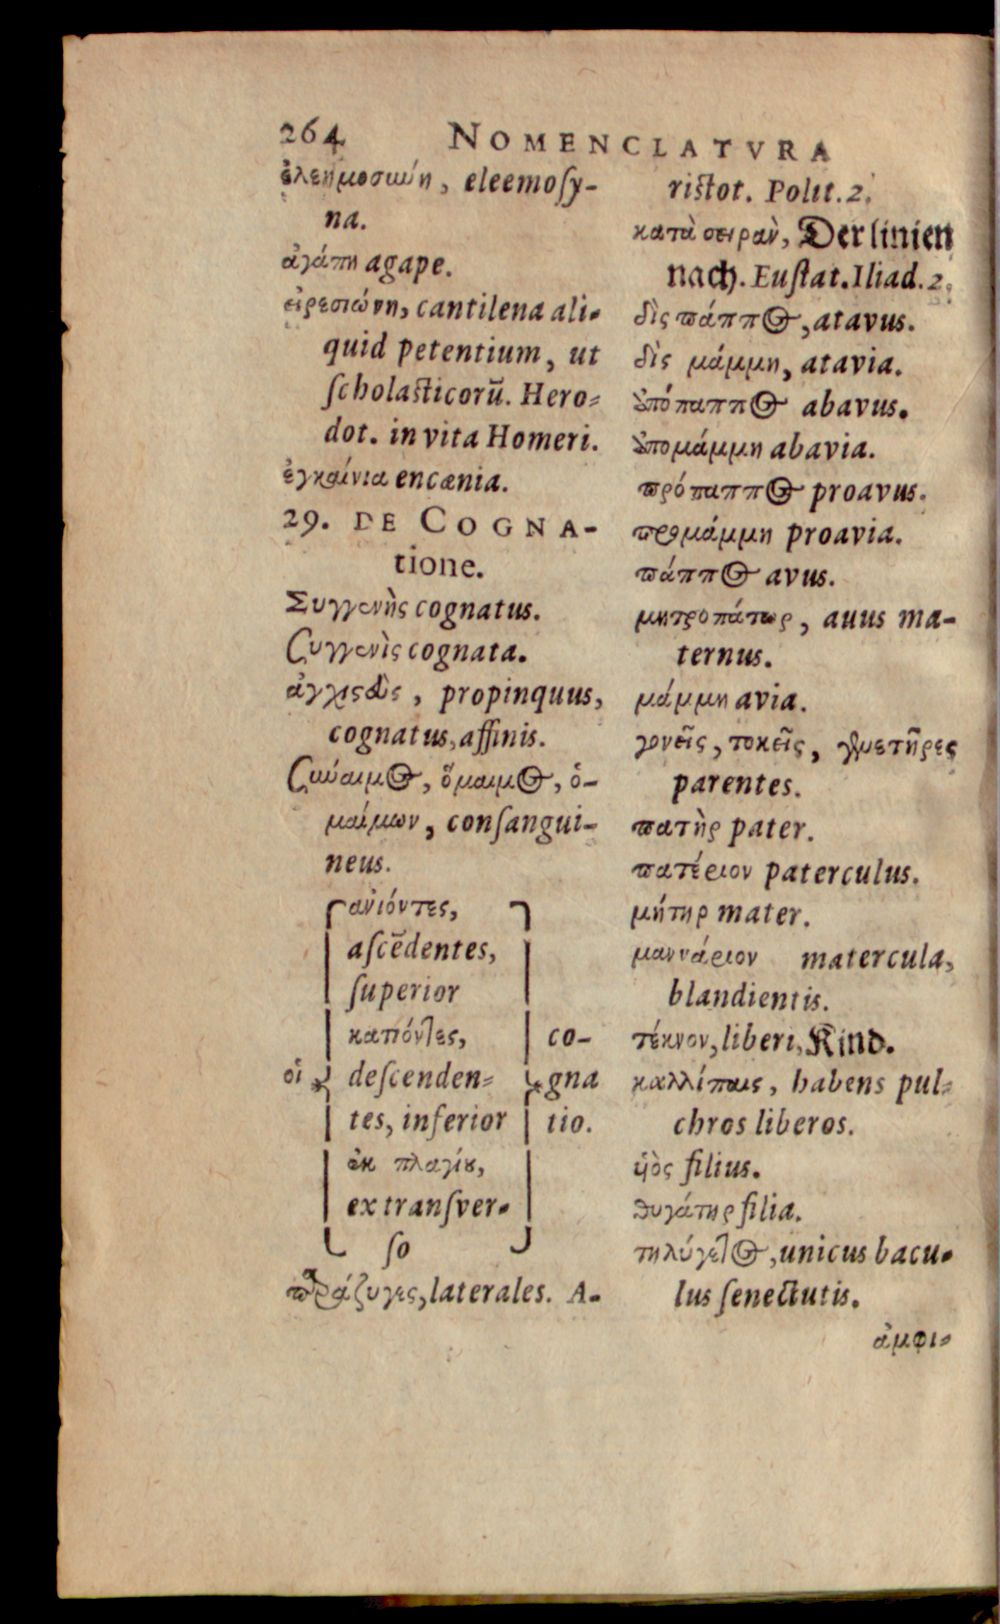 264 NOMENCLATVRA
ἐλεημοσύνη, eleemoſy-
na.
ἀγάπη agape.
εἰρεσιώνη, cantilena ali-
quid petentium, ut
ſcholaſticorū. Hero-
dot. in vita Homeri.
ἐγκαίνια encænia.
29. DE COGNA-
tione.
Συγγενὴς cognatus.
Συγγενὶς cognata.
ἀγχιςεὺς, propinquus,
cognatus, affinis.
Σύναιμος, ὅμαιμος, ὁ-
μαίμων, conſangui-
neus.
ἀνιόντες,
aſcēdentes,
ſuperior
κατιόντες, co-
οἱ deſcenden- gna
tes, inferior tio.
ἐκ πλαγίου,
ex tranſver-
ſo
παράζυγες, laterales. A-
riſtot. Polit. 2.
κατὰ σειρὰν, Der linien
nach. Euſtat. Iliad. 2.
δὶς πάππος, atavus.
δὶς μάμμη, atavia.
ὑπόπαππος abavus.
ὑπομάμμη abavia.
πρόπαππος proavus.
προμάμμη proavia.
πάππος avus.
μητροπάτωρ, auus ma-
ternus.
μάμμη avia.
γονεῖς, τοκεῖς, γενετῆρες
parentes.
πατὴρ pater.
πατέριον paterculus.
μήτηρ mater.
μαννάριον matercula,
blandientis.
τέκνον, liberi, Kind.
καλλίπαις, habens pul-
chros liberos.
ὑὸς filius.
θυγάτηρ filia.
τηλύγετος, unicus bacu-
lus ſenectutis.
ἀμφι-